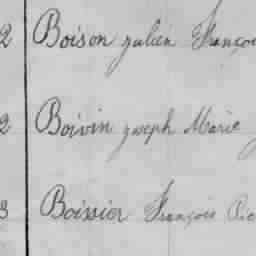 2 Boison julien Françoi
2 Boivin joseph Marie
3 Boissier François Pie